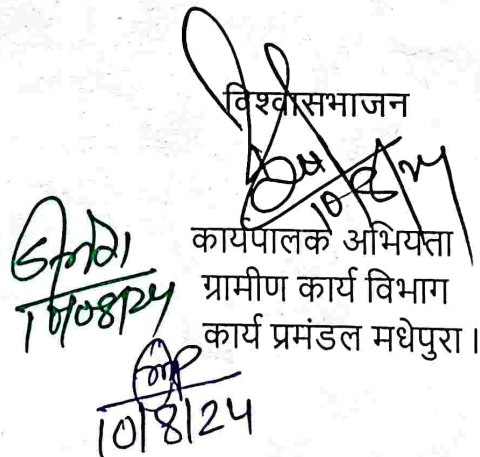 विश्वासभाजन
10/8/24
कार्यपालक अभियंता
ग्रामीण कार्य विभाग
कार्य प्रमंडल मधेपुरा।
10/08/24
10/8/24